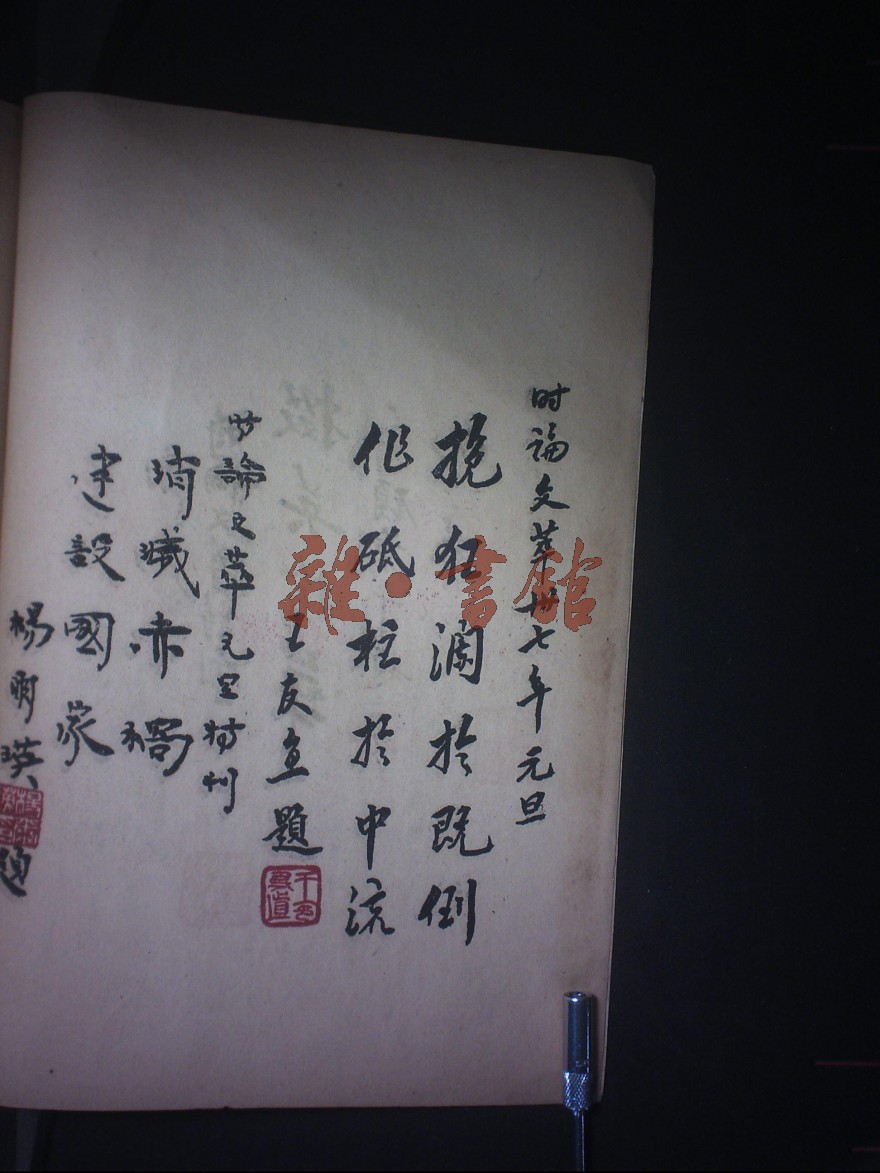 时論文萃卅七年元旦
挽狂瀾於既倒
作砥柱於中流
王友直題
时論文萃元旦特刊
消滅赤禍
建設國家
楊爾瑛題
雜·書館